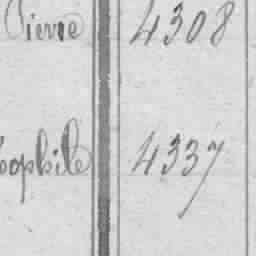 Pierre 4308
oophile 4337